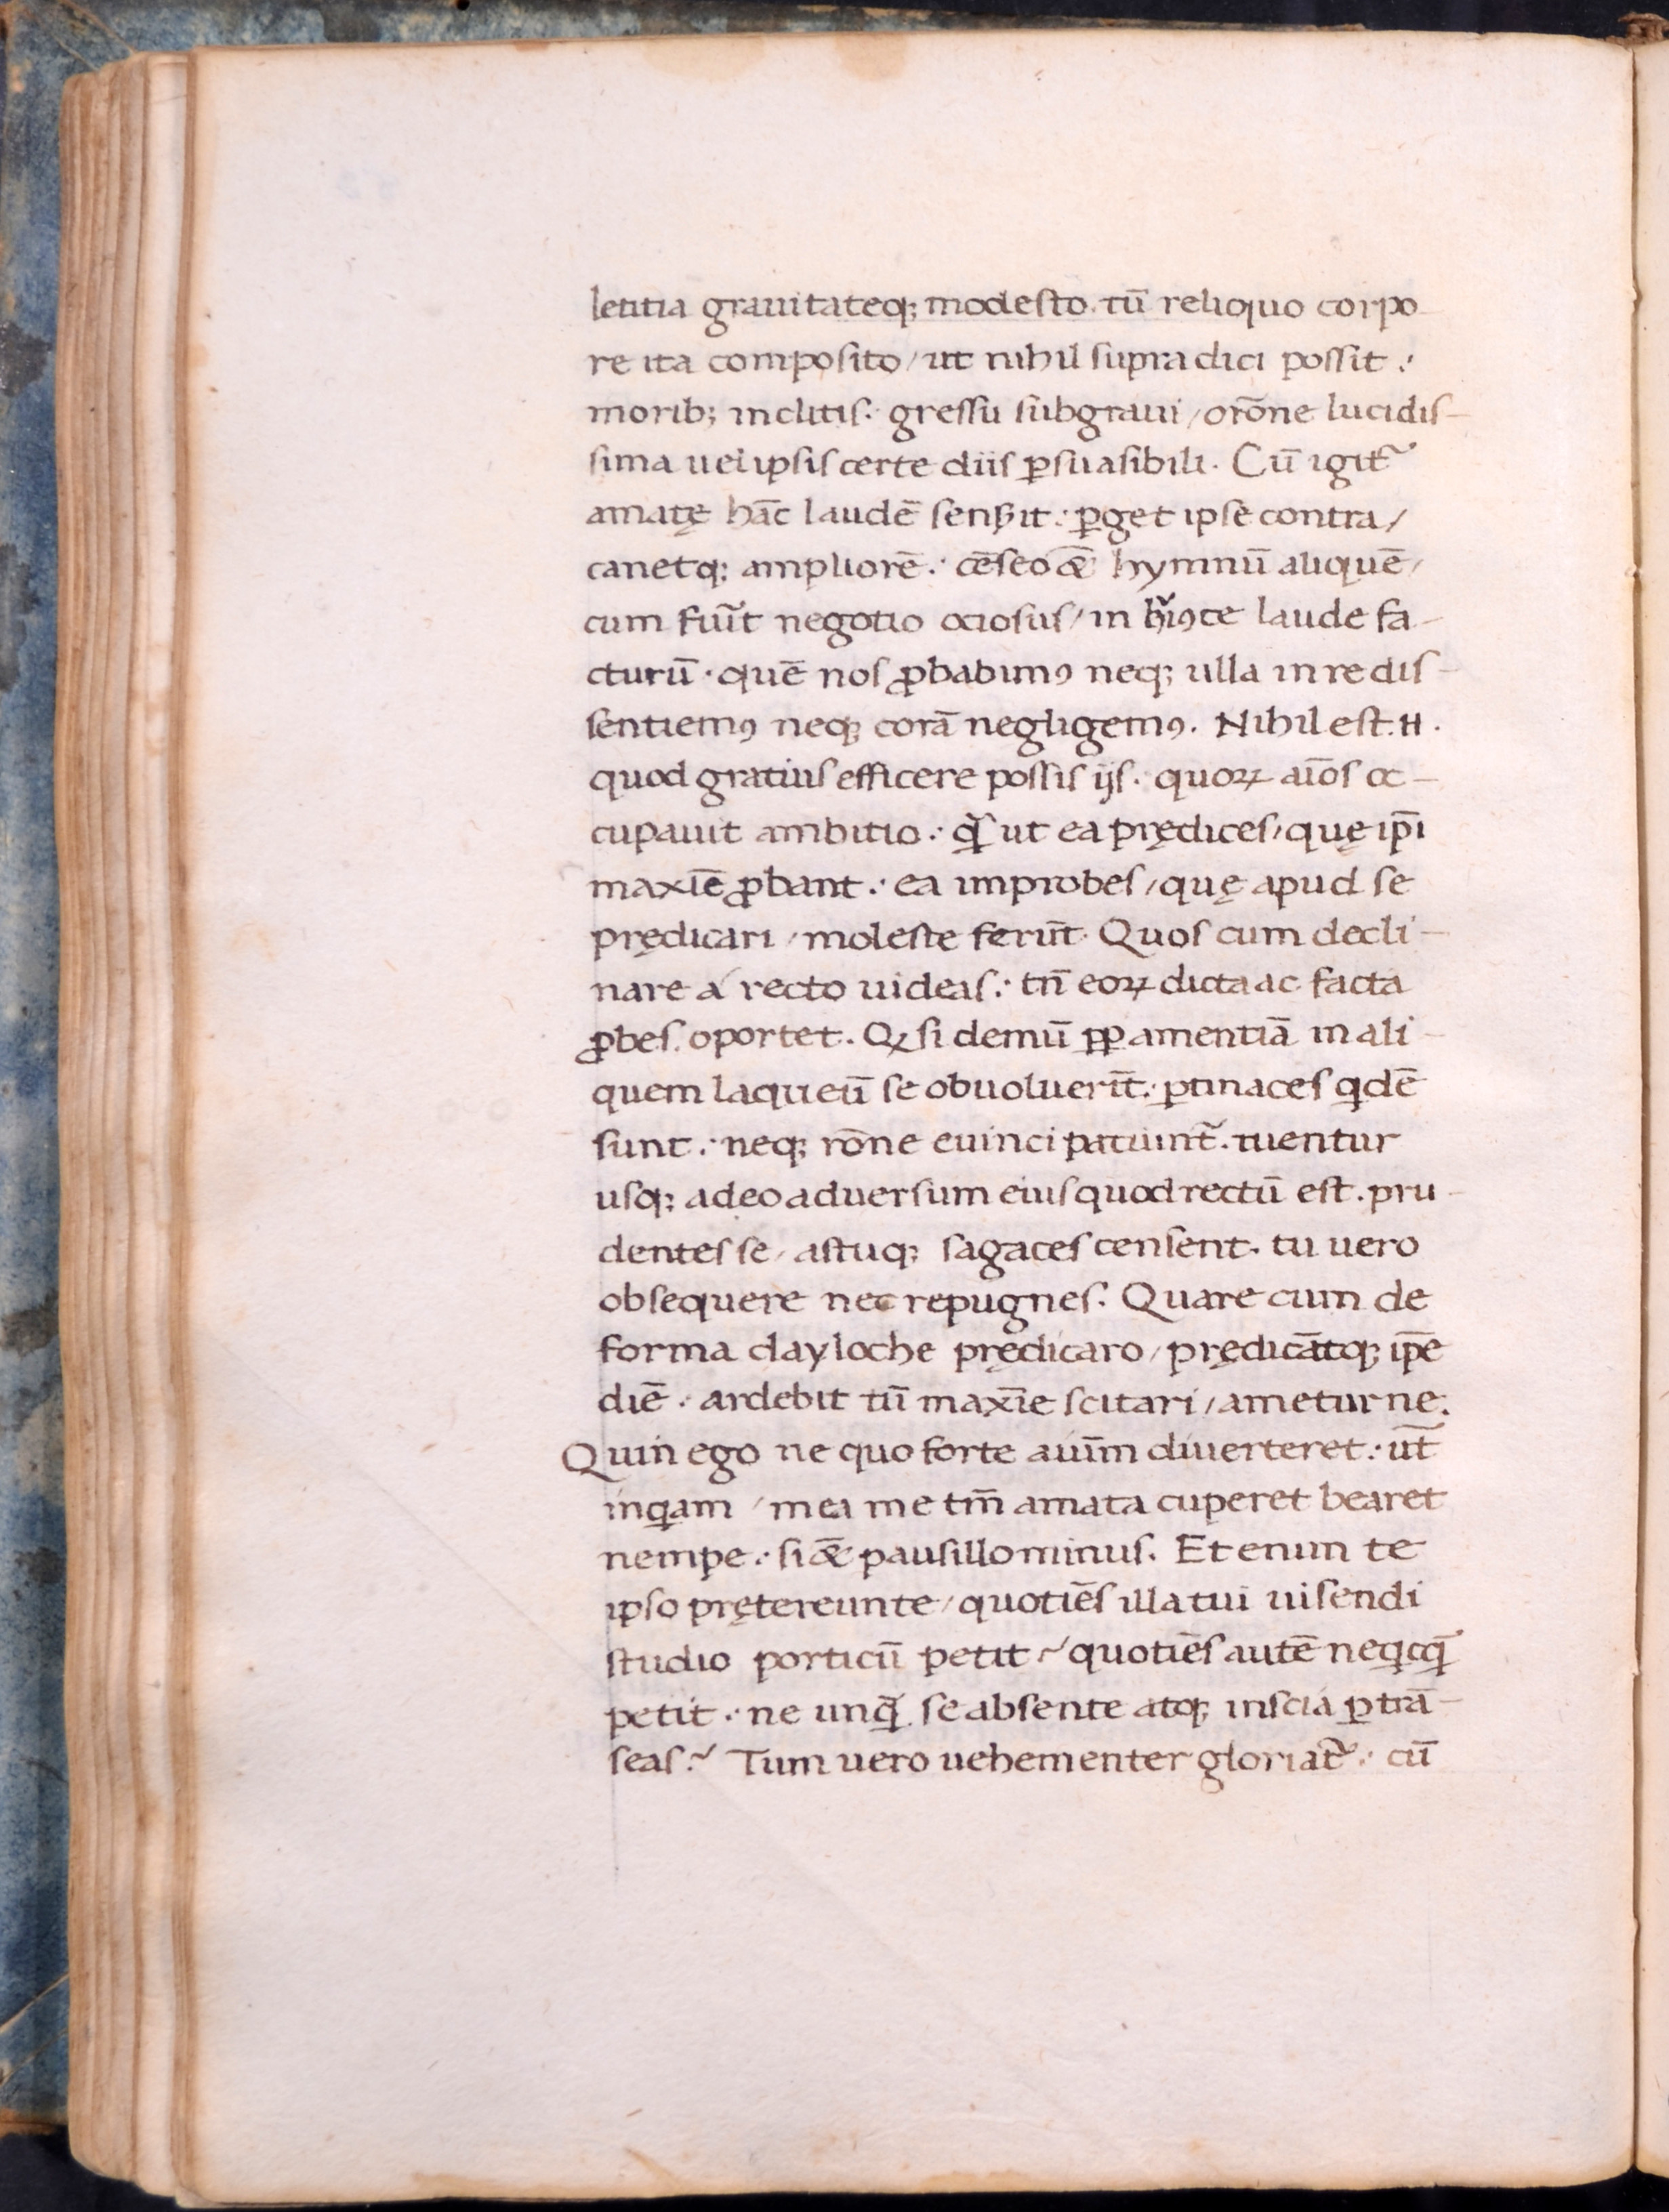 letitia grauitateq; modesto. tū reliquo corpo
re ita composito / ut nihil supra dici possit .·
morib; inclitis. gressu subgraui / orōne lucidis-
sima uel ipsis certe diis ꝑsuasibili. Cū igit᷑
amatę hāc laudē senserit .· ꝑget ipse contra /
canetq; ampliorē .· cēseo & hymnū aliquē /
cum fuīt negotio ociosus / in laude fa-
cturū . quē nos ꝓbabimꝰ neq; ulla in re dis-
sentiemꝰ neq; corā negligemꝰ. Nihil est .H.
quod gratius efficere possis ijs. quoꝝ aīos oc-
cupauit ambitio .· ꝙ̄ ut ea prędices / quę ip̄i
maxīe ꝓbant .· ea improbes / quę apud se
prędicari / moleste ferūt. Quos cum decli-
nare á recto uideas .· tn̄ eoꝝ dicta ac facta
ꝓbes oportet. Qꝫ si demū ꝓp amentiā in ali-
quem laqueū se obuoluerīt .· ꝑtinaces qdē
sunt .· neq; rōne euinci patiunt᷑. tuentur
usq; adeo aduersum eius quod rectū est. pru-
dentes se / astuq; sagaces censent. tu uero
obsequere nec repugnes. Quare cum de
forma clayloche prędicaro / prędicātoq; ip̄e
diē .· ardebit tū maxīe scitari / ametur ne.
Quin ego ne quo forte auīm diuerteret .· ut̄
inqam / mea me tm̄ amata cuperet bearet
nempe .· si & pausillo minus. Et enim te
ipso prętereunte / quotiēs illa tui uisendi
studio porticū petit ~ quotiēs autē neqcq̄
petit .· ne unq̄ se absente atq; inscia ꝑ trā-
seas .~ Tum uero uehementer gloriat᷑ .· cū